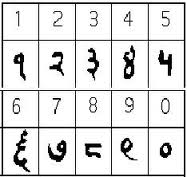 1 2 3 4 5
१ २ ३ ४ ५
6 7 8 9 0
६ ७ ८ ९ ०